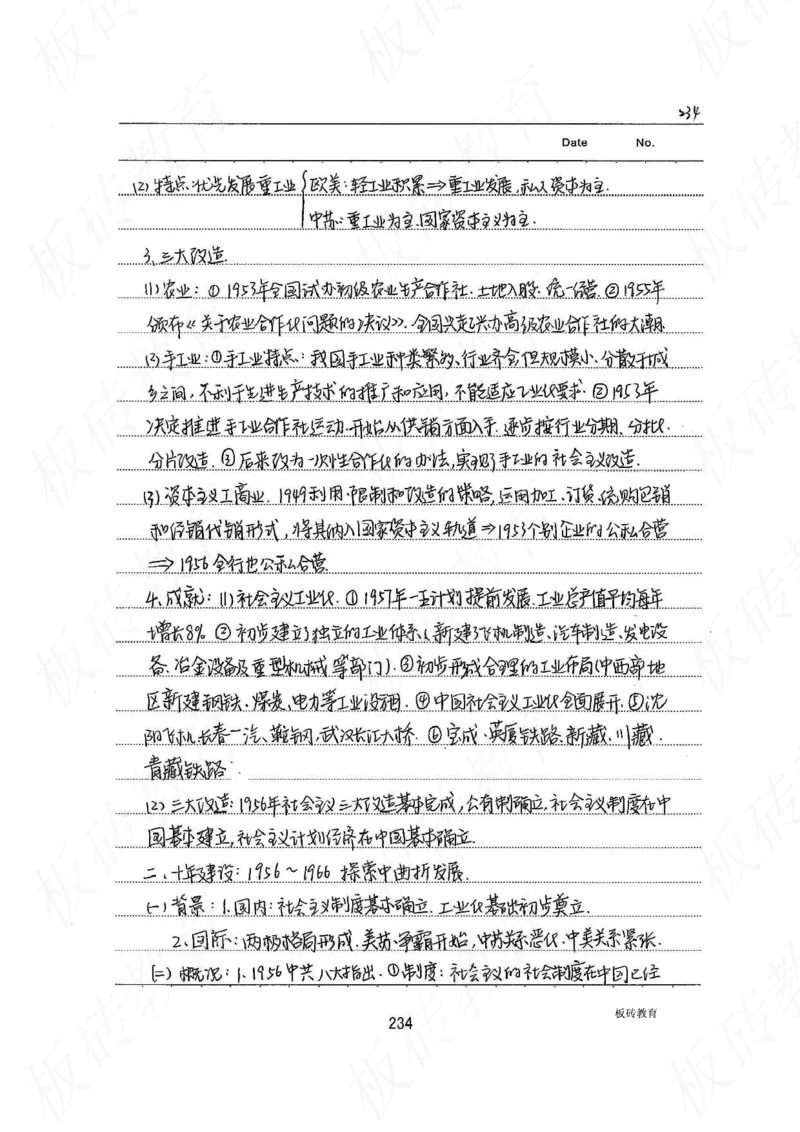 234
Date No.
(2) 特点:优先发展重工业 { 欧美:轻工业积累⇒重工业发展,私人资本为主.
中苏:重工业为主、国家资本主义为主.
3、三大改造.
(1)农业:①1953年全国试办初级农业生产合作社.土地入股.统一经营.②1955年
颁布《关于农业合作化问题的决议》.全国兴起兴办高级农业合作社的大潮.
(2)手工业:①手工业特点:我国手工业种类繁多、行业齐全但规模小、分散于城
乡之间,不利于先进生产技术的推广和应用,不能适应工业化要求.②1953年
决定推进手工业合作社运动.开始从供销方面入手.逐步按行业分期、分批.
分片改造.③后来改为一次性合作化的办法,实现了手工业的社会主义改造.
(3)资本主义工商业.1949利用.限制和改造的策略,运用加工、订货、统购包销
和经销代销形式,将其纳入国家资本主义轨道⇒1953个别企业的公私合营
⇒1956全行业公私合营.
4、成就:(1)社会主义工业化.①1957年一五计划提前发展.工业总产值平均每年
增长8%.②初步建立了独立的工业体系(新建飞机制造、汽车制造、发电设
备、冶金设备及重型机械等部门).③初步形成合理的工业布局(中西部地
区新建钢铁.煤炭、电力等工业设施.④中国社会主义工业化全面展开.⑤沈
阳飞机.长春一汽、鞍钢.武汉长江大桥.⑥完成.英厦铁路.新藏.川藏.
青藏铁路.
(2)三大改造:1956年社会主义三大改造基本完成,公有制确立.社会主义制度在中
国基本建立,社会主义计划经济在中国基本确立.
二、十年建设:1956~1966 探索中曲折发展.
(一)背景:1.国内:社会主义制度基本确立.工业化基础初步奠立.
2.国际:两极格局形成.美苏争霸开始,中苏关系恶化.中美关系紧张.
(二)概况:1.1956中共八大指出.①制度:社会主义的社会制度在中国已经
板砖教育
234